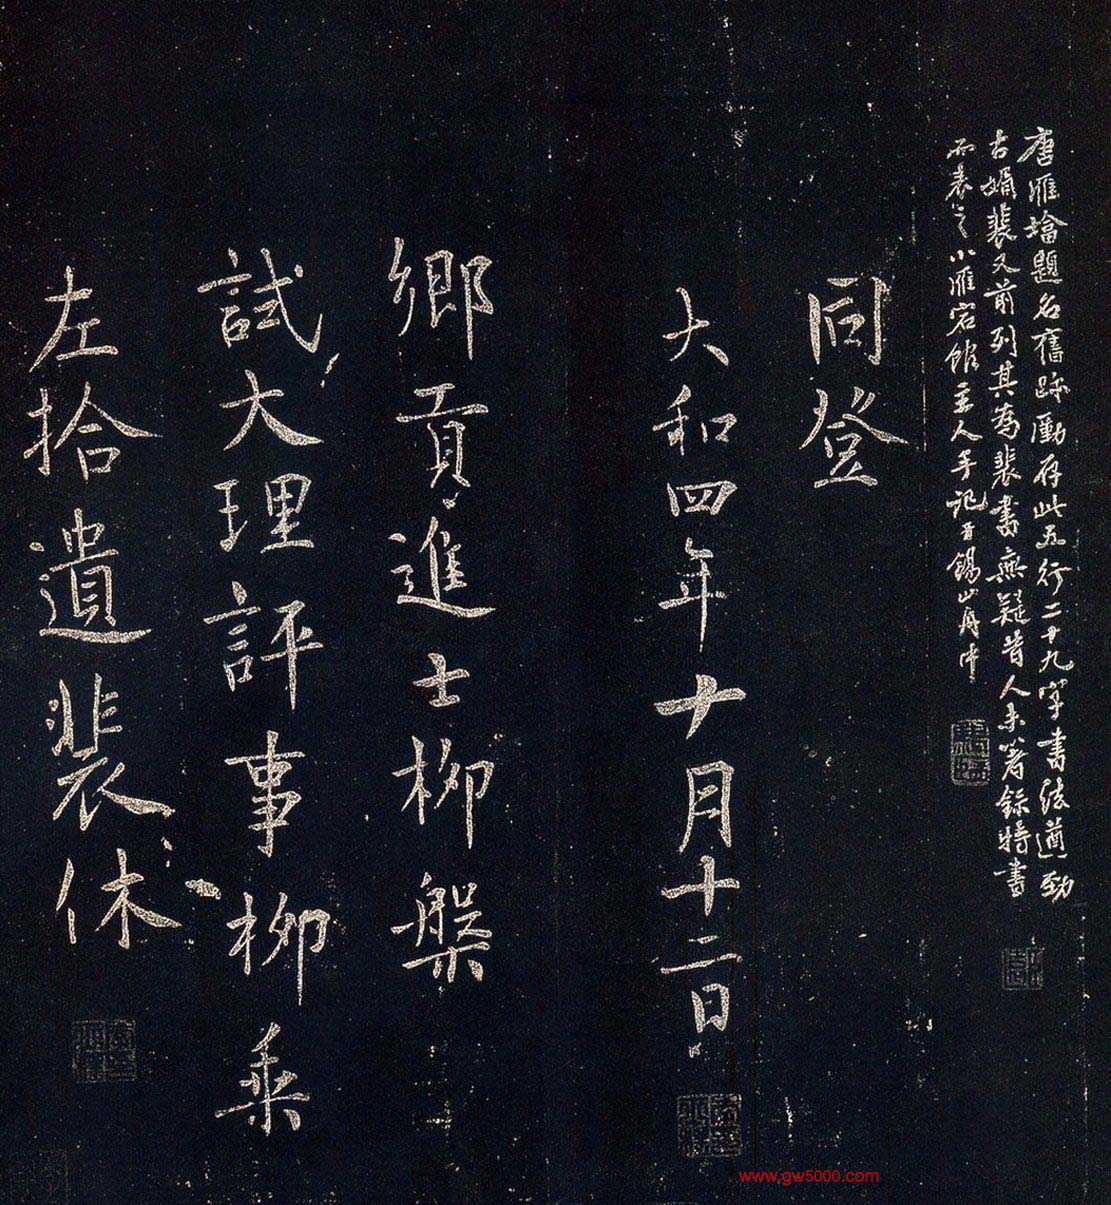 左拾遺裴休
試大理評事柳乘
鄉貢進士柳槃
大和四年十月十二日
同登
唐雁墖題名舊跡存此五行二十九字書法遒勁
古娟裴又前列其為裴書無疑昔人未著錄特書
而表之小雁宕館主人手記錫山
www.gw5000.com